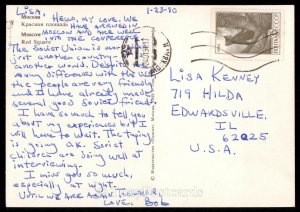 1-23-90
Lisa,
Hello, my love. We
have arrived in
Moscow and are well
into the conference.
The Soviet Union is more than
just another country -
another world. Despite
many differences with the US
the people are very friendly
and I have already made
several good Soviet friends.
I have so much to tell you
about my experience but I
will have to wait. The trying
is going O.K. Soviet
children are doing well at
interviewing.
I miss you so much,
especially at night.
Until we are again together
Love, Bob
Москва
Красная площадь
Moscow
Red Square
Lisa Kenney
719 Hilda
Edwardsville
IL
62025
U.S.A.